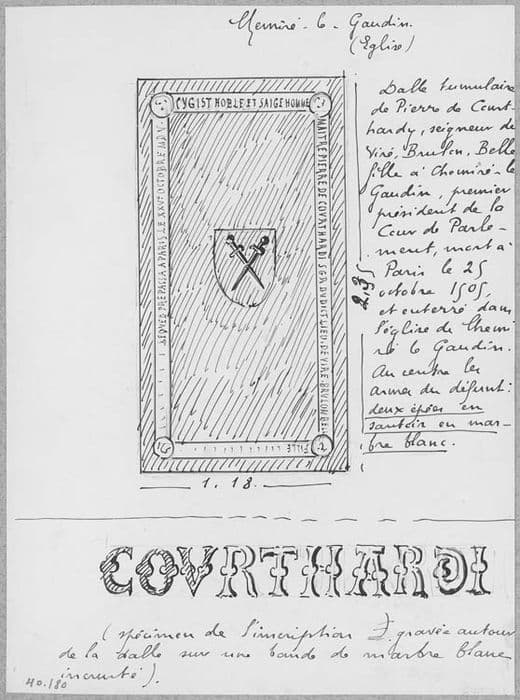 Chemiré-le-Gaudin.
(Eglise)
CYGIST NOBLE ET SAIGE HOMME
MAITRE PIERRE DE COVRTHARDI SGR DVDICT LIEU DE VIRE BRVLON BEL
FILLE
PREPASSA A PARIS LE XXVe OCTOBRE MDV
Dalle tumulaire
de Pierre de Court-
hardy, seigneur de
Viré, Brulon, Belle
fille à Chemiré-le
Gaudin, premier
président de la
Cour de Parle-
ment, mort à
Paris le 25
octobre 1505,
et enterré dans
l'église de Chemi
ré le Gaudin.
Au centre les
armes du défunt:
deux épées en
sautoir en mar-
bre blanc.
2,35
1.18.
COVRTHARDI
(spécimen de l'inscription gravée autour
de la dalle sur une bande de marbre blanc
incrusté).
40.180